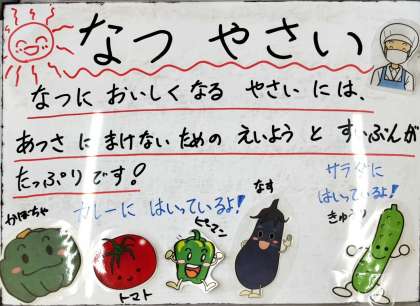 なつ やさい
なつに おいしく なる やさい には、
あつさ に まけない ための えいよう と すいぶんが
たっぷり です!
カレーに はいっているよ!
サラダに
はいっているよ!
かぼちゃ
トマト
ピーマン
なす
きゅうり